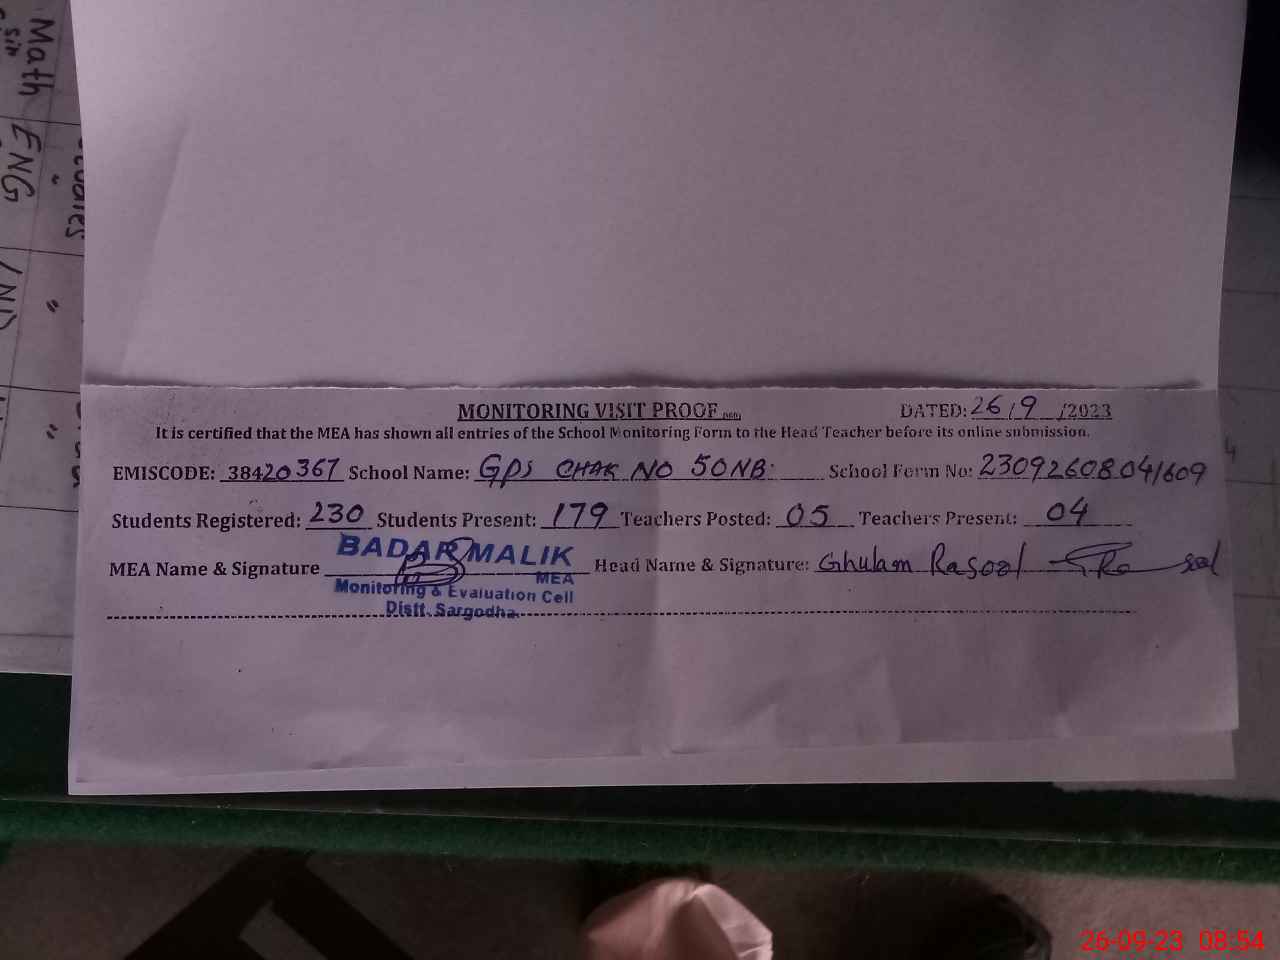 Math
sin
ENG
"
"
"
MONITORING VISIT PROOF
DATED: 26/9/2023
It is certified that the MEA has shown all entries of the School Monitoring Form to the Head Teacher before its online submission.
EMISCODE: 38420367 School Name: GPS CHAK NO 50NB: School Form No: 2309260804/609
Students Registered: 230 Students Present: 179 Teachers Posted: 05 Teachers Present: 04
MEA Name & Signature BADAR MALIK Head Name & Signature: Ghulam Rasool
MEA
Monitoring & Evaluation Cell
Distt. Sargodha.
26-09-23 08:54